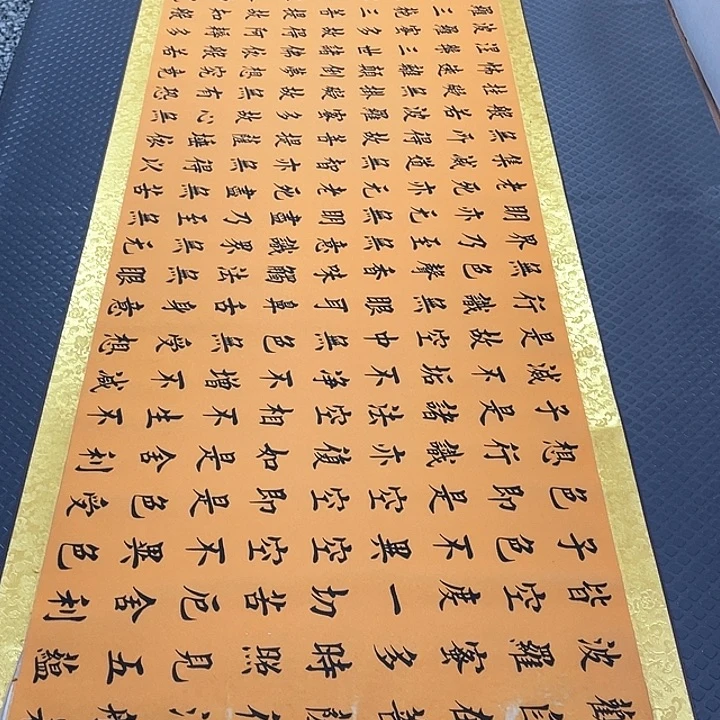 波羅蜜多時照見五蘊
皆空度一切苦厄舍利
子色不異空空不異色
色即是空空即是色受
想行識亦復如是舍利
子是諸法空相不生不
滅不垢不净不增不減
是故空中無色無受想
行識無眼耳鼻舌身意
無色聲香味觸法無眼
界乃至無意識界無无
明亦无無明盡乃至無
老死亦无老死盡無苦
集滅道無智亦無得以
無所得故菩提薩埵依
般若波羅蜜多故心無
挂礙無挂礙故無有恐
怖遠離顛倒夢想究竟
涅槃三世諸佛依般若
波羅蜜多故得阿耨多
羅三藐三菩提故知般